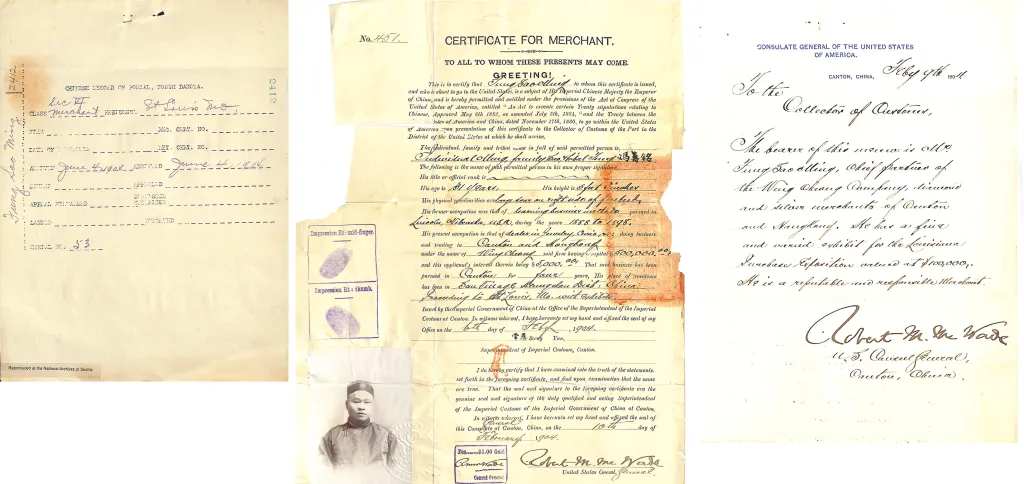 CHINESE RECORD OF PORTAL, NORTH DAKOTA.
Sec VI
CLASS Merchant RESIDENCE St Louis Mo
OTHER REG. CERT. NO.
DATE OF CERT. NO.
ARRIVED June 4, 1904 ADMITTED June 4, 1904
DENIED APPEALED
APPEAL DISMISSED SUSTAINED
LANDED DEPORTED
SERIAL NO. 53
Fung Soo Ming
2412
2412
Reproduced at the National Archives at Seattle
No. 451.
CERTIFICATE FOR MERCHANT.
TO ALL TO WHOM THESE PRESENTS MAY COME.
GREETING!
This is to certify that Fung Soo Ming to whom this certificate is issued,
and who is about to go to the United States, is a subject of His Imperial Chinese Majesty the Emperor
of China, and is hereby permitted and entitled under the provisions of the Act of Congress of the
United States of America, entitled "An Act to execute certain Treaty stipulations relating to
Chinese, Approved May 6th 1882, as amended July 5th, 1884," and the Treaty between the
United States of America and China, dated November 17th, 1880, to go within the United States
of America upon presentation of this certificate to the Collector of Customs of the Port in the
District of the United States at which he shall arrive.
The individual, family and tribal name in full of said permitted person is,
Individual Ming, family Soo, tribal Fung
The following is the name of said permitted person in his own proper signature.
His title or official rank is
His age is 31 Years. His height is 5 feet 5 inches
His physical peculiarities are large scar on right side of forehead
His former occupation was that of learning business methods pursued in
Lincoln, Nebraska, U.S.A. during the years 1885 to 1895.
His present occupation is that of dealer in Jewelry, Curio, &c. doing business
and trading in Canton and Hongkong
under the name of Wing Chang said firm having a capital $500,000.00
and this applicant's interest therein being $5,000.00 That said business has been
pursued in Canton for four years, His place of residence
has been in China
Proceeding to St Louis, Mo. with exhibits
Issued by the Imperial Government of China at the Office of the Superintendent of the Imperial
Customs at Canton. In witness whereof, I have hereunto set my hand and affixed the seal of my
Office on the 6th day of Feby 1904.
Seong Yan,
Superintendent of Imperial Customs, Canton.
I do hereby certify that I have examined into the truth of the statements
set forth in the foregoing certificate, and find upon examination that the same
are true. That the seal and signature to the foregoing certificate are the
genuine seal and signature of the duly qualified and acting Superintendent
of the Imperial Customs of the Imperial Government of China at Canton.
In witness whereof, I have hereunto set my hand and affixed the seal of
this Consulate General at Canton, China, on the 10th day of
February 1904.
Robert M. McWade
United States Consul, General
Impression Rt: mid-finger
Impression Rt: thumb.
Fee $1.00 Gold
Consul General
CONSULATE GENERAL OF THE UNITED STATES
OF AMERICA.
CANTON, CHINA, Feby 9th 1904
To the
Collector of Customs,
The bearer of this memo is Mr
Fung Soo Ming, Chief partner of
the Wing Chang Company, diamond
and silver merchants of Canton
and Hongkong. He has a fine
and varied exhibit for the Louisiana
Purchase Exposition valued at $100,000.
He is a reputable and responsible Merchant.
Robert M. McWade
U.S. Consul General,
Canton, China.